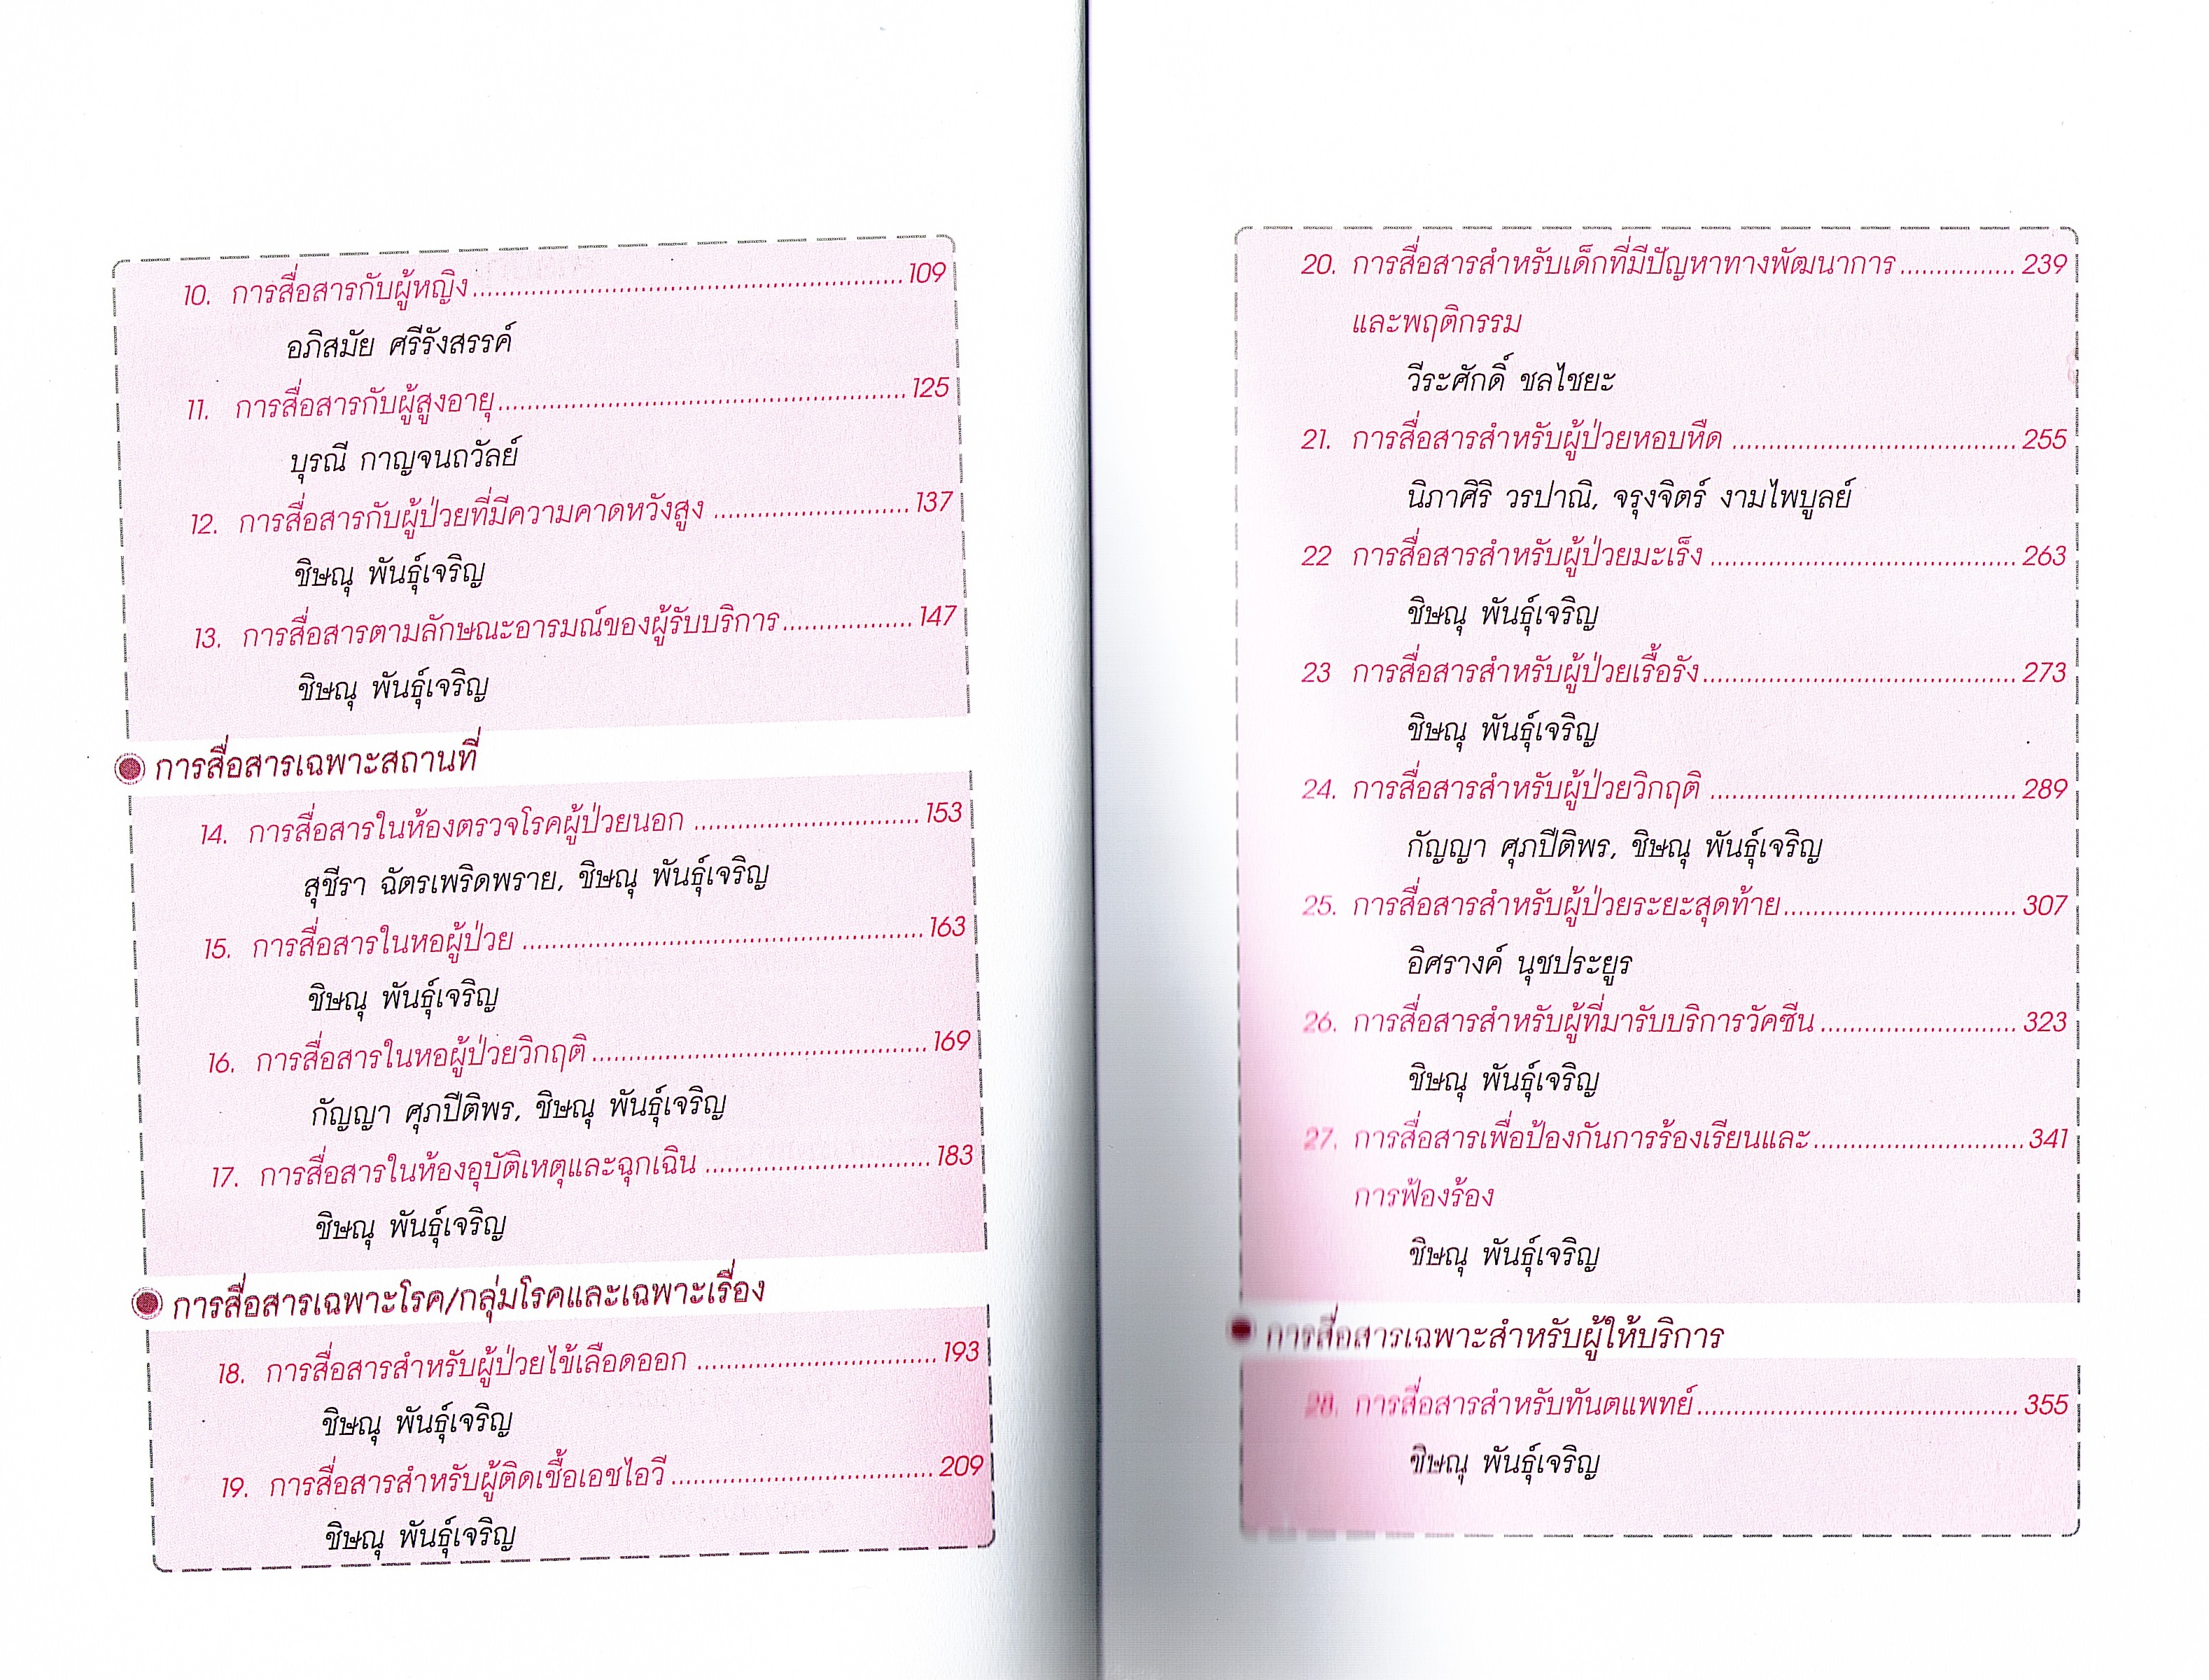 10. การสื่อสารกับผู้หญิง 109
อภิสมัย ศรีรังสรรค์
11. การสื่อสารกับผู้สูงอายุ 125
บุรณี กาญจนถวัลย์
12. การสื่อสารกับผู้ป่วยที่มีความคาดหวังสูง 137
ชิษณุ พันธุ์เจริญ
13. การสื่อสารตามลักษณะอารมณ์ของผู้รับบริการ 147
ชิษณุ พันธุ์เจริญ
การสื่อสารเฉพาะสถานที่
14. การสื่อสารในห้องตรวจโรคผู้ป่วยนอก 153
สุชีรา ฉัตรเพริดพราย, ชิษณุ พันธุ์เจริญ
15. การสื่อสารในหอผู้ป่วย 163
ชิษณุ พันธุ์เจริญ
16. การสื่อสารในหอผู้ป่วยวิกฤติ 169
กัญญา ศุภปีติพร, ชิษณุ พันธุ์เจริญ
17. การสื่อสารในห้องอุบัติเหตุและฉุกเฉิน 183
ชิษณุ พันธุ์เจริญ
การสื่อสารเฉพาะโรค/กลุ่มโรคและเฉพาะเรื่อง
18. การสื่อสารสำหรับผู้ป่วยไข้เลือดออก 193
ชิษณุ พันธุ์เจริญ
19. การสื่อสารสำหรับผู้ติดเชื้อเอชไอวี 209
ชิษณุ พันธุ์เจริญ
20. การสื่อสารสำหรับเด็กที่มีปัญหาทางพัฒนาการ 239
และพฤติกรรม
วีระศักดิ์ ชลไชยะ
21. การสื่อสารสำหรับผู้ป่วยหอบหืด 255
นิภาศิริ วรปาณิ, จรุงจิตร์ งามไพบูลย์
22 การสื่อสารสำหรับผู้ป่วยมะเร็ง 263
ชิษณุ พันธุ์เจริญ
23 การสื่อสารสำหรับผู้ป่วยเรื้อรัง 273
ชิษณุ พันธุ์เจริญ
24. การสื่อสารสำหรับผู้ป่วยวิกฤติ 289
กัญญา ศุภปีติพร, ชิษณุ พันธุ์เจริญ
25. การสื่อสารสำหรับผู้ป่วยระยะสุดท้าย 307
อิศรางค์ นุชประยูร
26. การสื่อสารสำหรับผู้ที่มารับบริการวัคซีน 323
ชิษณุ พันธุ์เจริญ
27. การสื่อสารเพื่อป้องกันการร้องเรียนและ 341
การฟ้องร้อง
ชิษณุ พันธุ์เจริญ
การสื่อสารเฉพาะสำหรับผู้ให้บริการ
28. การสื่อสารสำหรับทันตแพทย์ 355
ชิษณุ พันธุ์เจริญ